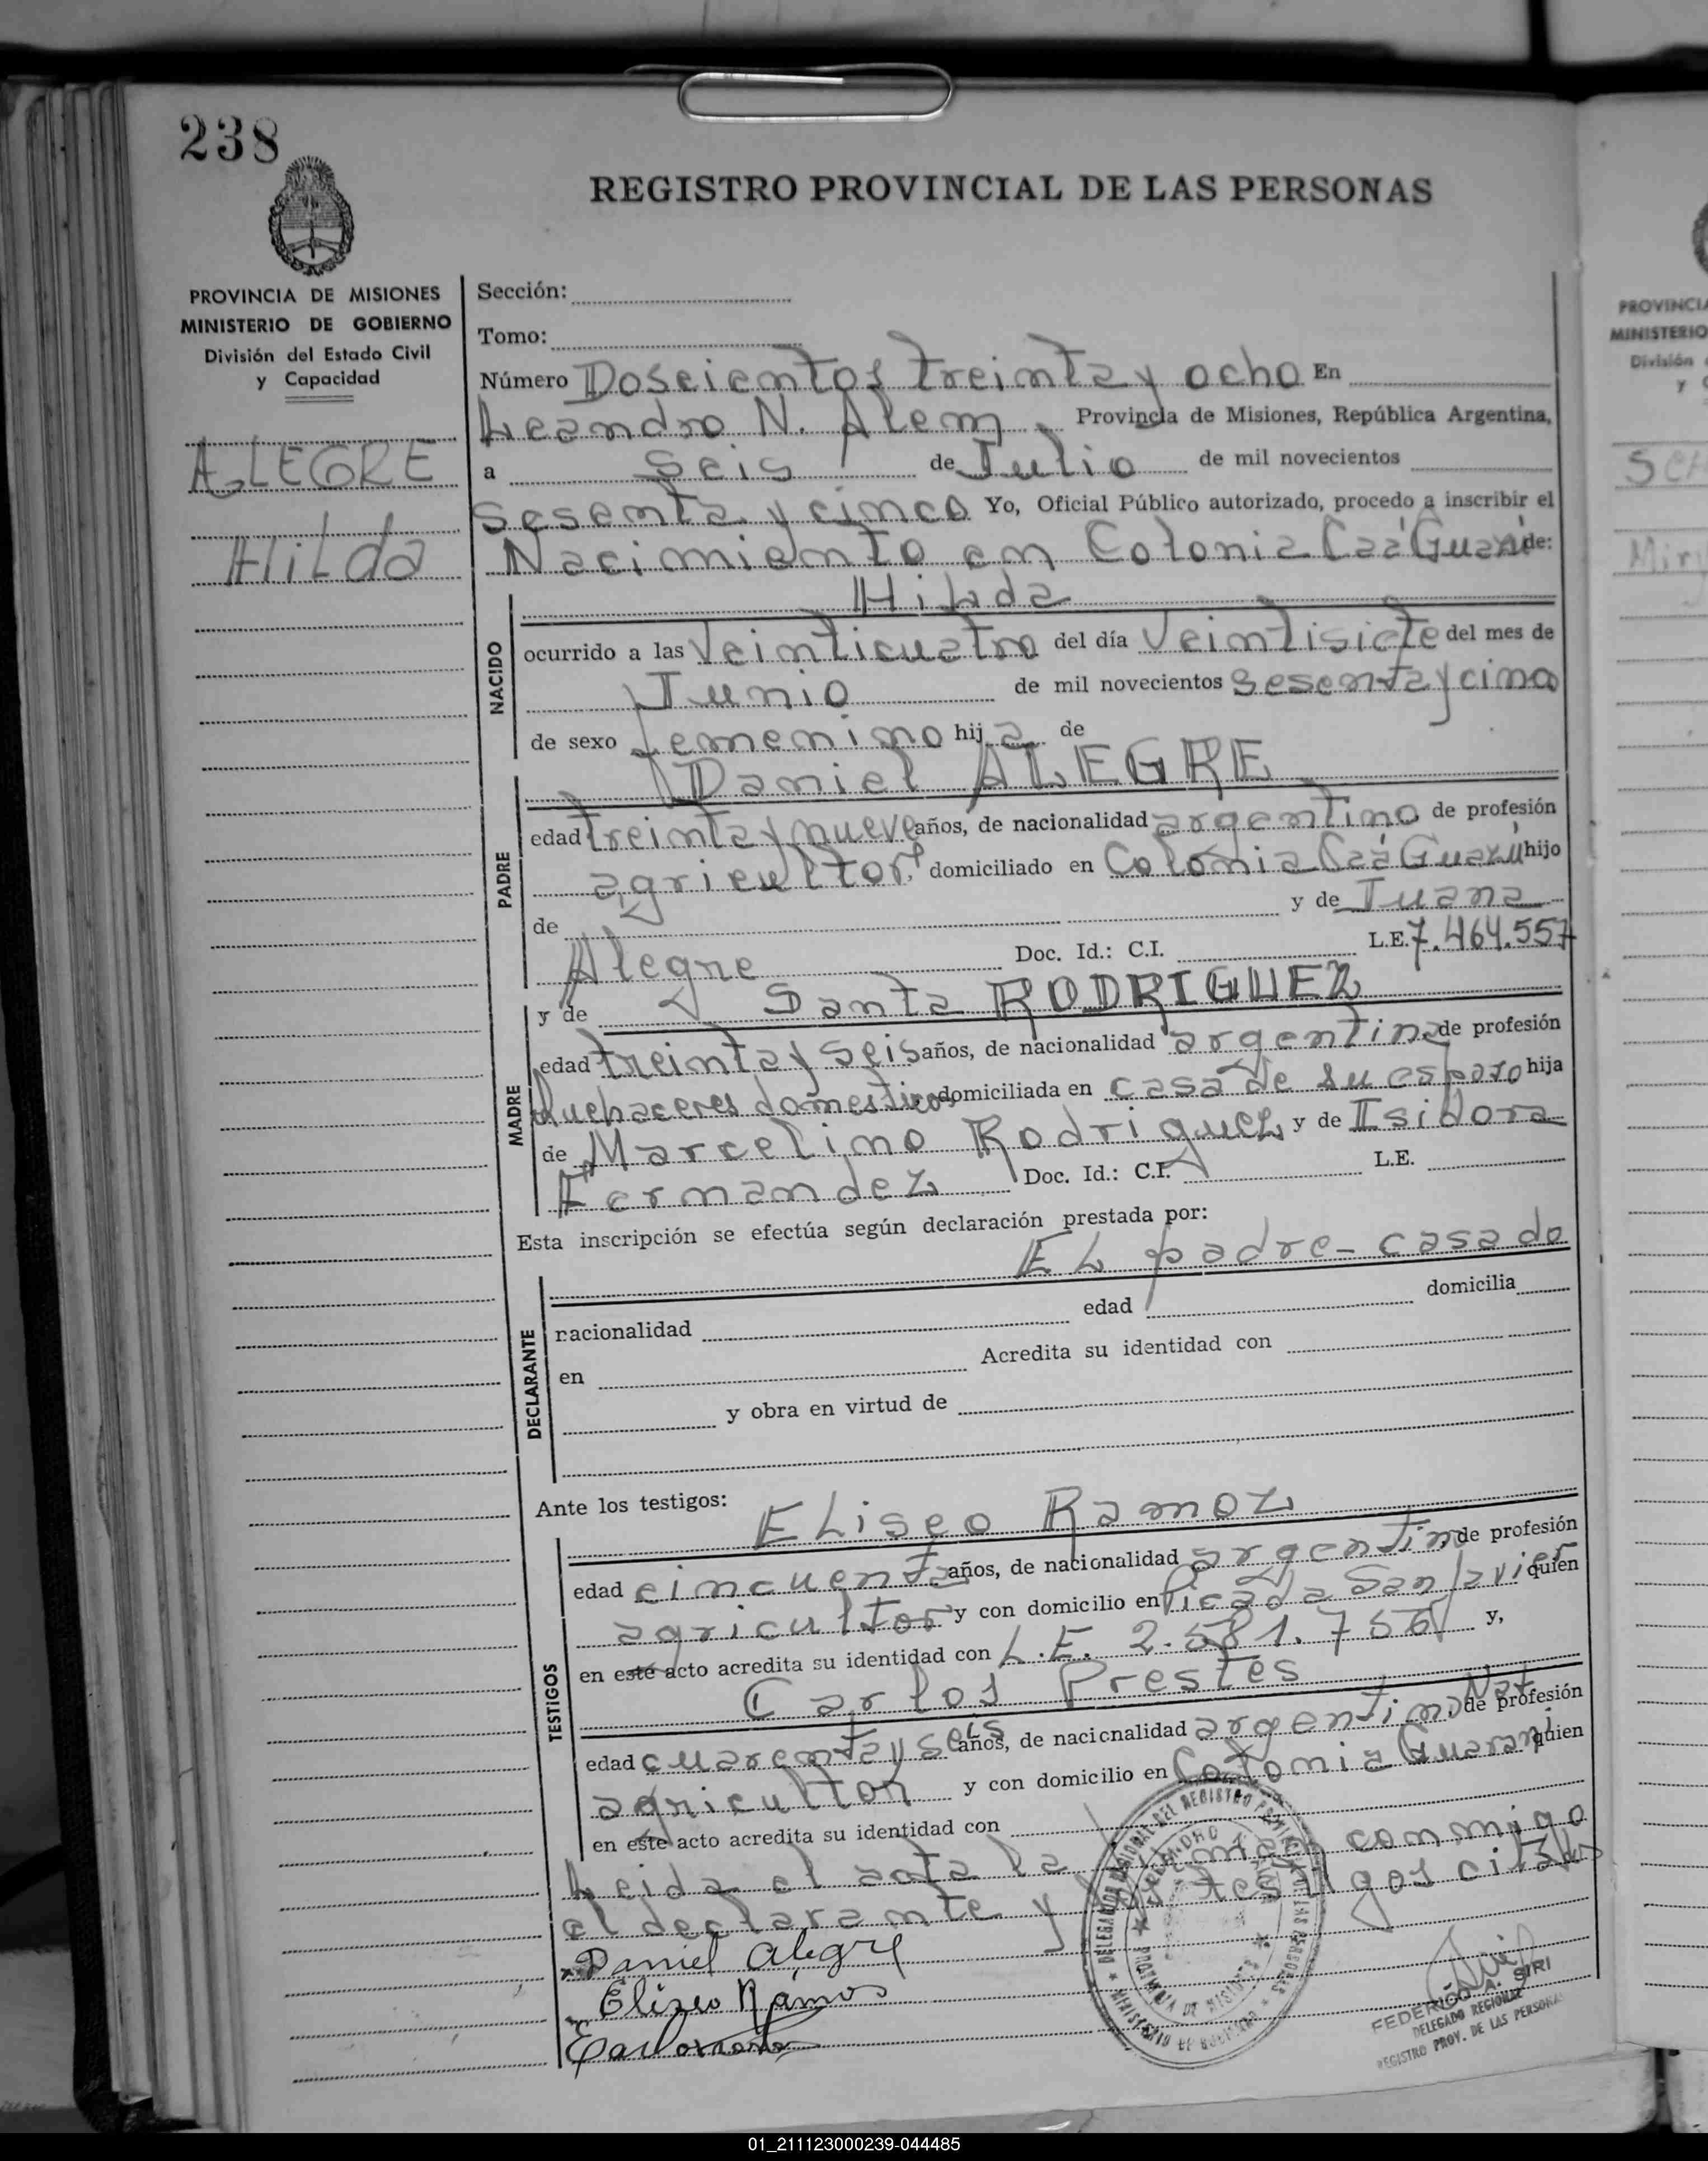 238
REGISTRO PROVINCIAL DE LAS PERSONAS
PROVINCIA DE MISIONES
MINISTERIO DE GOBIERNO
División del Estado Civil
y Capacidad
ALEGRE
Hilda
Sección:
Tomo:
Número Doscientos treinta y ocho En
Leandro N. Alem, Provincia de Misiones, República Argentina,
a seis de Julio de mil novecientos
sesenta y cinco Yo, Oficial Público autorizado, procedo a inscribir el
Nacimiento en Colonia Caá Guazú de:
Hilda
NACIDO
ocurrido a las Veinticuatro del día Veintisiete del mes de
Junio de mil novecientos sesenta y cinco
de sexo femenino hija de
Daniel ALEGRE
PADRE
edad treinta y nueve años, de nacionalidad argentino de profesión
agricultor, domiciliado en Colonia Caá Guazú hijo
de y de Juana
Alegre Doc. Id.: C.I. L.E. 7.464.557
y de Santa RODRIGUEZ
MADRE
edad treinta y seis años, de nacionalidad argentina de profesión
Quehaceres domesticos domiciliada en casa de su esposo hija
de Marcelino Rodriguez y de Isidora
Fernandez Doc. Id.: C.I. L.E.
Esta inscripción se efectúa según declaración prestada por:
EL padre - casado
DECLARANTE
nacionalidad edad domicilia
en Acredita su identidad con
y obra en virtud de
Ante los testigos:
ELiseo Ramoz
TESTIGOS
edad cincuenta años, de nacionalidad argentino, de profesión
agricultor y con domicilio en Picada San Javier quien
en este acto acredita su identidad con L.E. 2.581.756 y,
Carlos Prestes
edad cuarenta y seis años, de nacionalidad argentino Nat de profesión
agricultor y con domicilio en Colonia Guarani quien
en este acto acredita su identidad con
Leida el acta la firman conmigo
el declarante y testigos citados
Daniel Alegre
Elizeo Ramos
DELEGACION REGIONAL DEL REGISTRO PROVINCIAL DE LAS PERSONAS
LEANDRO N. ALEM
PROVINCIA DE MISIONES
MINISTERIO DE GOBIERNO
FEDERICO A. SIRI
DELEGADO REGIONAL
REGISTRO PROV. DE LAS PERSONAS
PROVINCIA
MINISTERIO
División
y
01_211123000239-044485